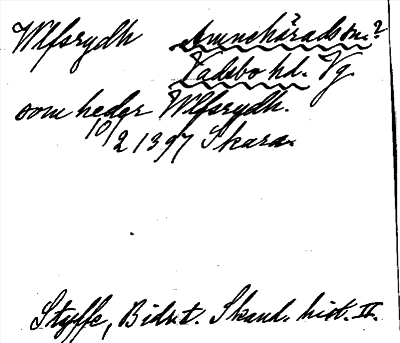 Wlfsrydh Amnehärads sn.?
Vadsbo hd. Vg.
som heder Wlfsrydh.
10/2 1397 Skara.
Styffe, Bidr. t. Skand. hist. II.